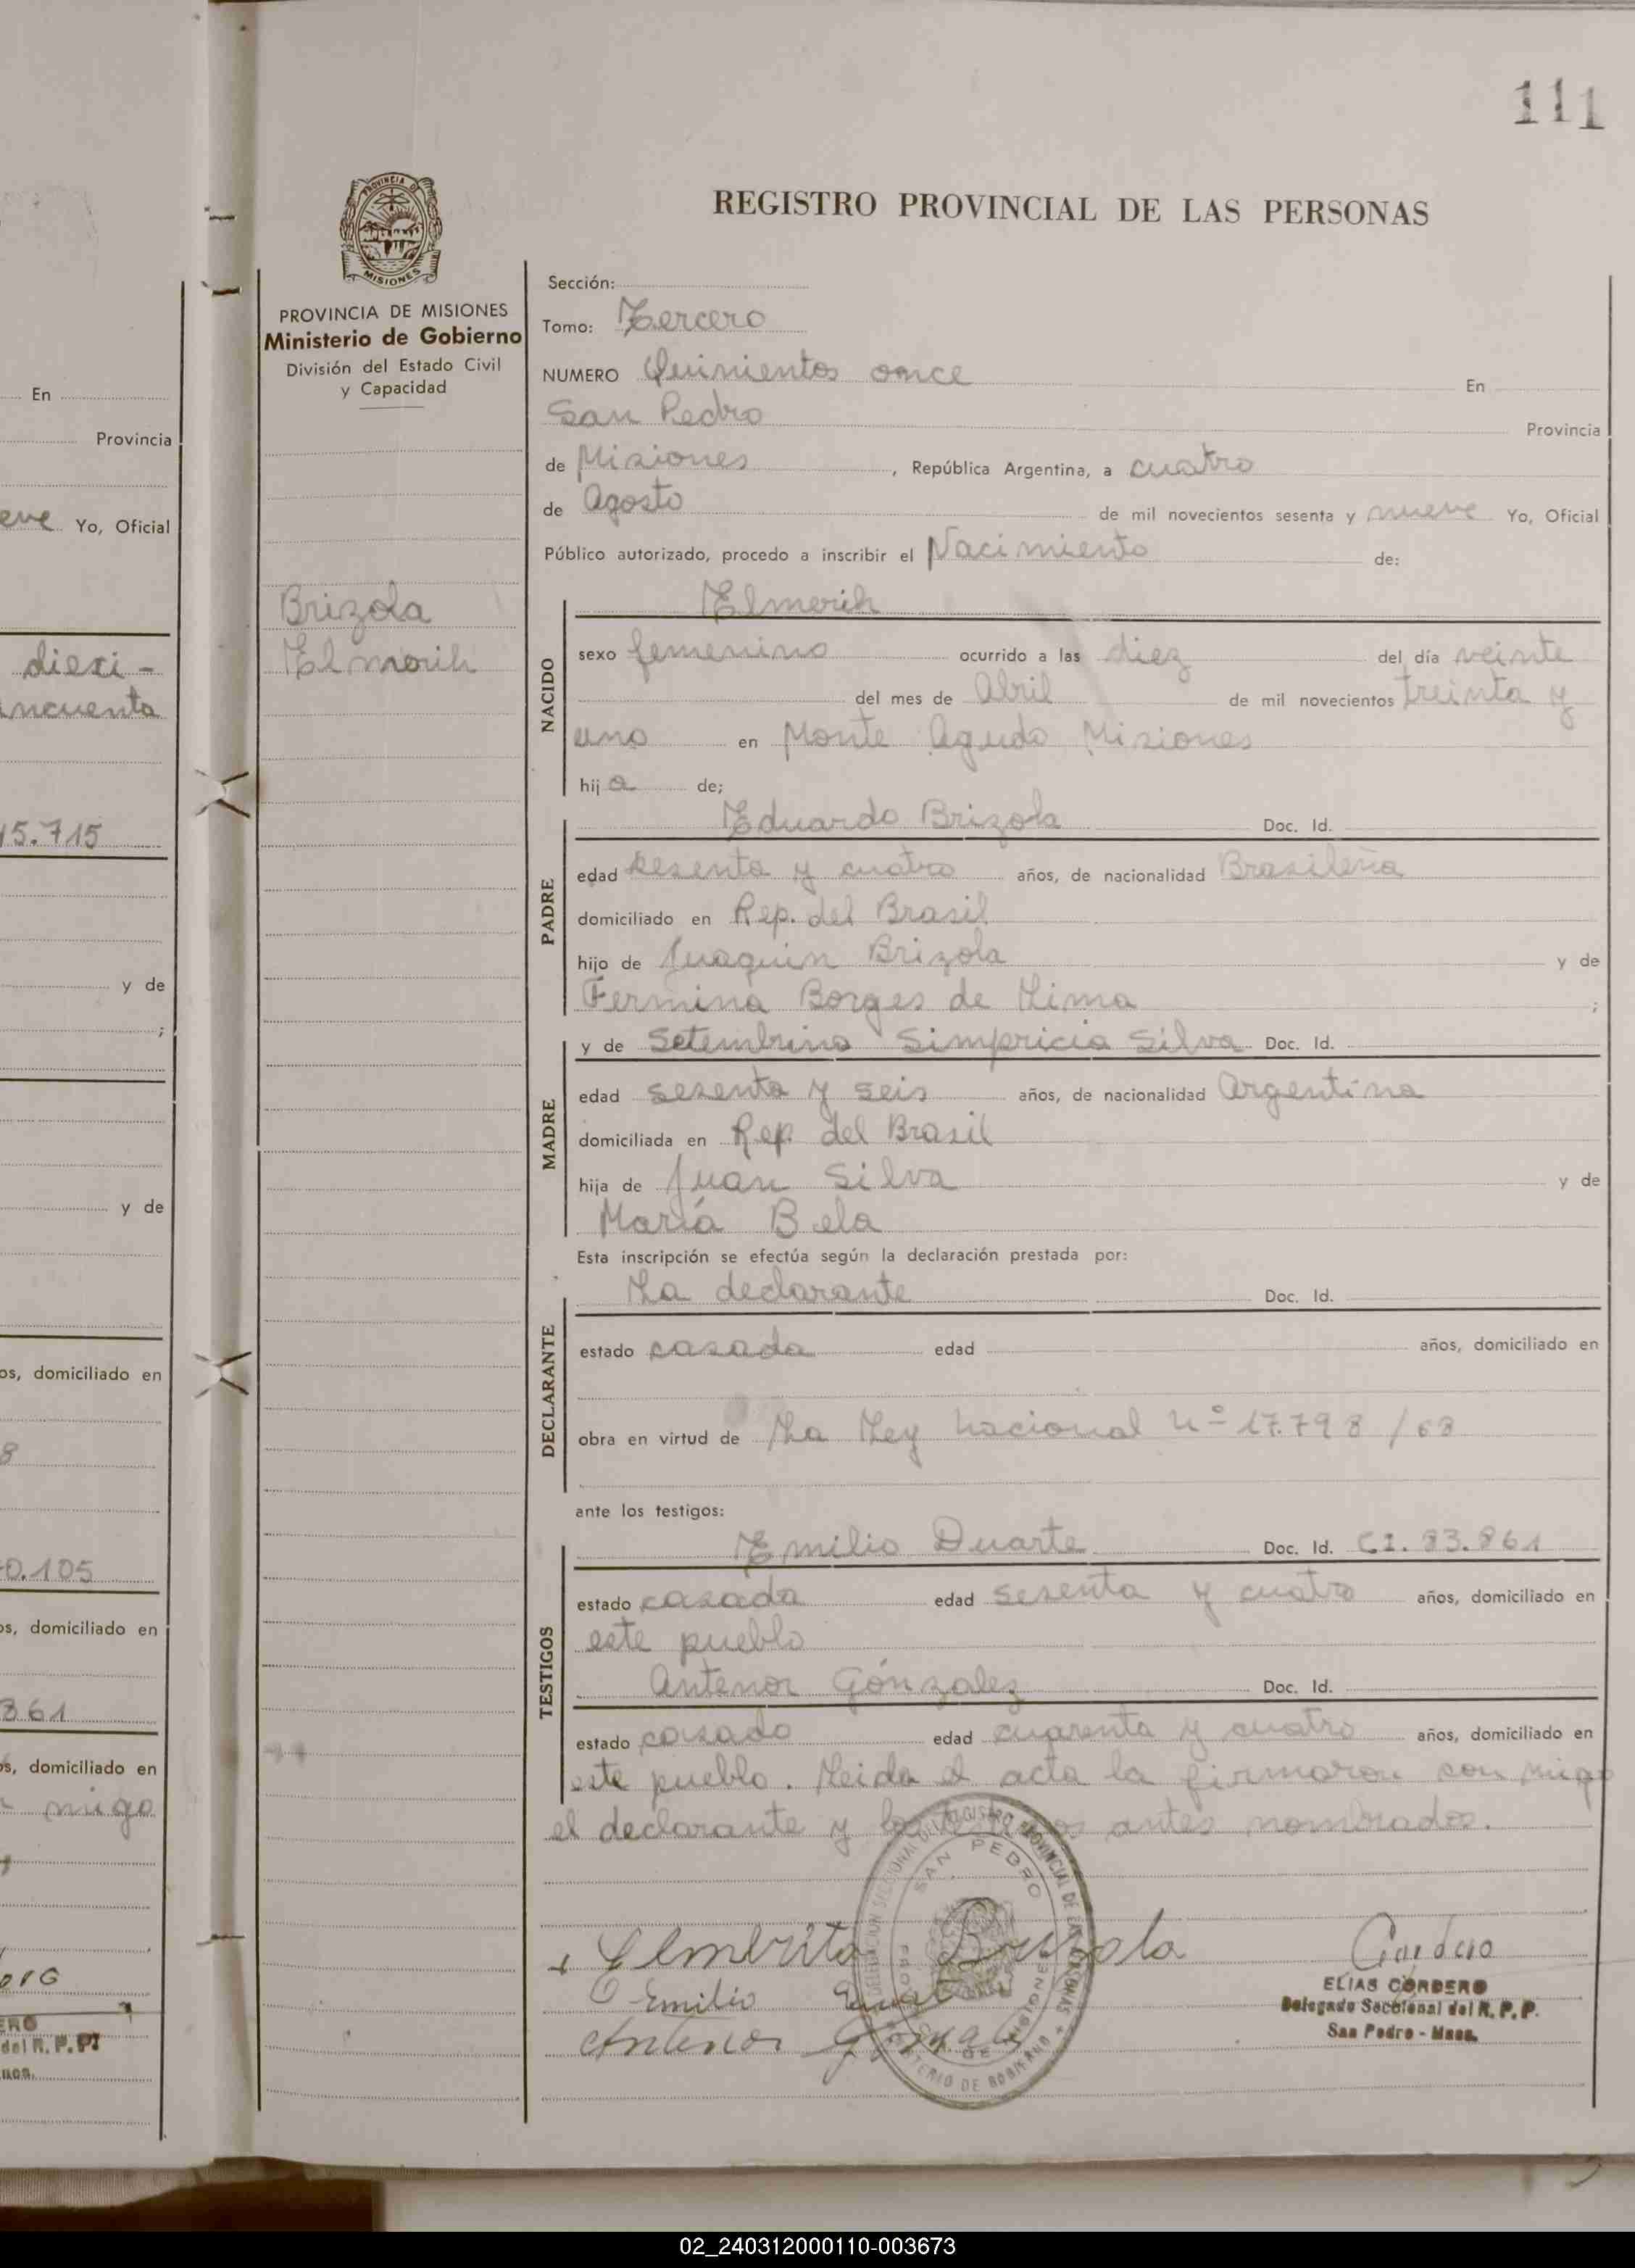 111
REGISTRO PROVINCIAL DE LAS PERSONAS
PROVINCIA DE MISIONES
PROVINCIA DE MISIONES
Ministerio de Gobierno
División del Estado Civil
y Capacidad
Brizola
Elmerih
Sección:
Tomo: Tercero
NUMERO Quinientos once En
San Pedro Provincia
de Misiones, República Argentina, a cuatro
de Agosto de mil novecientos sesenta y nueve Yo, Oficial
Público autorizado, procedo a inscribir el Nacimiento de:
NACIDO
Elmerih
sexo femenino ocurrido a las diez del día veinte
del mes de Abril de mil novecientos treinta y
uno en Monte Agudo Misiones
hija de;
PADRE
Eduardo Brizola Doc. Id.
edad sesenta y cuatro años, de nacionalidad Brasileña
domiciliado en Rep. del Brasil
hijo de Juaquin Brizola y de
Fermina Borges de Lima ;
MADRE
y de Setembrina Simpricia Silva Doc. Id.
edad sesenta y seis años, de nacionalidad Argentina
domiciliada en Rep. del Brasil
hija de Juan Silva y de
María Bela
Esta inscripción se efectúa según la declaración prestada por:
DECLARANTE
La declarante Doc. Id.
estado casada edad años, domiciliado en
obra en virtud de La Ley nacional nº 17.798/68
ante los testigos:
TESTIGOS
Emilio Duarte Doc. Id. CI. 83.861
estado casada edad sesenta y cuatro años, domiciliado en
este pueblo
Antenor Gónzalez Doc. Id.
estado casado edad cuarenta y cuatro años, domiciliado en
este pueblo. Leida el acta la firmaron con migo
el declarante y los testigos antes nombrados.
SAN PEDRO
Elmerita Brizola
Emilio Duarte
Antenor Gonzalez
Cordero
ELIAS CORDERO
Delegado Seccional del R. P. P.
San Pedro - Mnes.
En
Provincia
eve Yo, Oficial
dieci-
incuenta
15.715
y de
;
y de
os, domiciliado en
8
0.105
os, domiciliado en
861
os, domiciliado en
migo
del R. P. P.
02_240312000110-003673